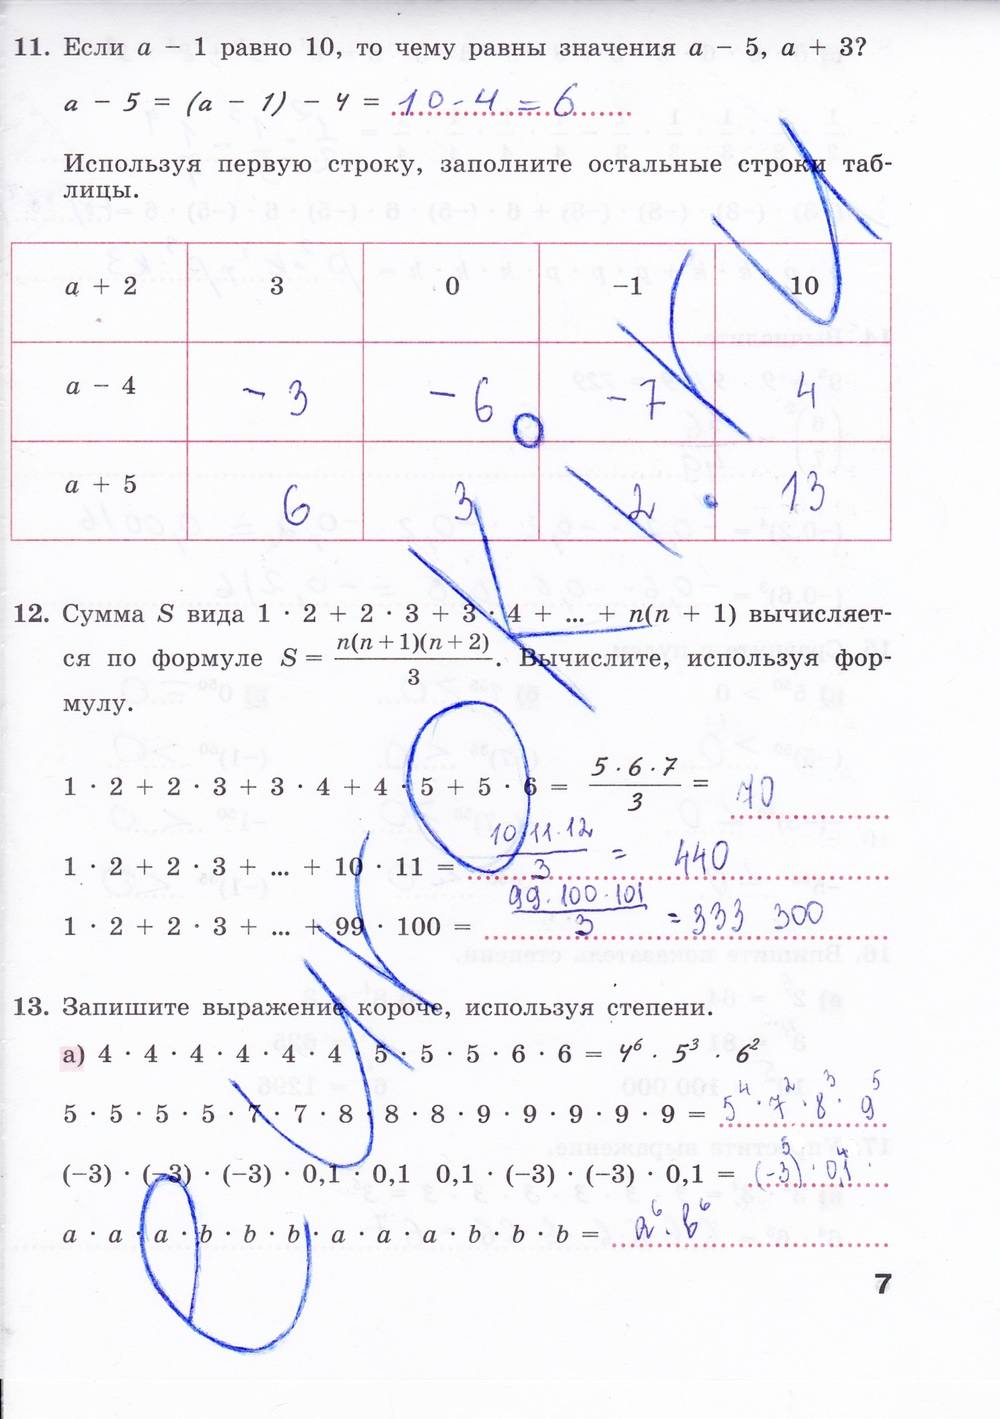 11. Если a − 1 равно 10, то чему равны значения a − 5, a + 3?
a − 5 = (a − 1) − 4 = 10 - 4 = 6
Используя первую строку, заполните остальные строки таб-
лицы.
a + 2 3 0 −1 10
a − 4 - 3 - 6 - 7 4
a + 5 6 3 2 13
12. Сумма S вида 1 · 2 + 2 · 3 + 3 · 4 + ... + n(n + 1) вычисляет-
ся по формуле S = n(n+1)(n+2)/3. Вычислите, используя фор-
мулу.
1 · 2 + 2 · 3 + 3 · 4 + 4 · 5 + 5 · 6 = 5 · 6 · 7/3 = 70
1 · 2 + 2 · 3 + ... + 10 · 11 = 10·11·12/3 = 440
1 · 2 + 2 · 3 + ... + 99 · 100 = 99·100·101/3 = 333 300
13. Запишите выражение короче, используя степени.
а) 4 · 4 · 4 · 4 · 4 · 4 · 5 · 5 · 5 · 6 · 6 = 4⁶ · 5³ · 6²
5 · 5 · 5 · 5 · 7 · 7 · 8 · 8 · 8 · 9 · 9 · 9 · 9 · 9 = 5⁴ · 7² · 8³ · 9⁵
(−3) · (−3) · (−3) · 0,1 · 0,1 0,1 · (−3) · (−3) · 0,1 = (-3)⁵ · 0,1⁴
a · a · a · b · b · b · a · a · a · b · b · b = a⁶ · b⁶
7